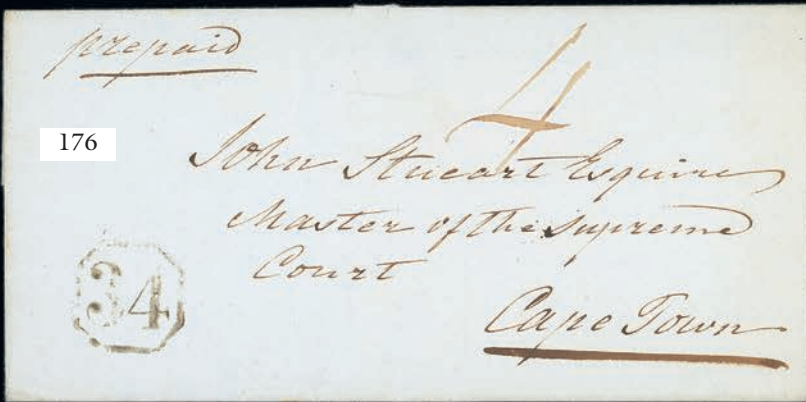 prepaid
4
176
John Stueart Esquire
Master of the Supreme
Court
34
Cape Town